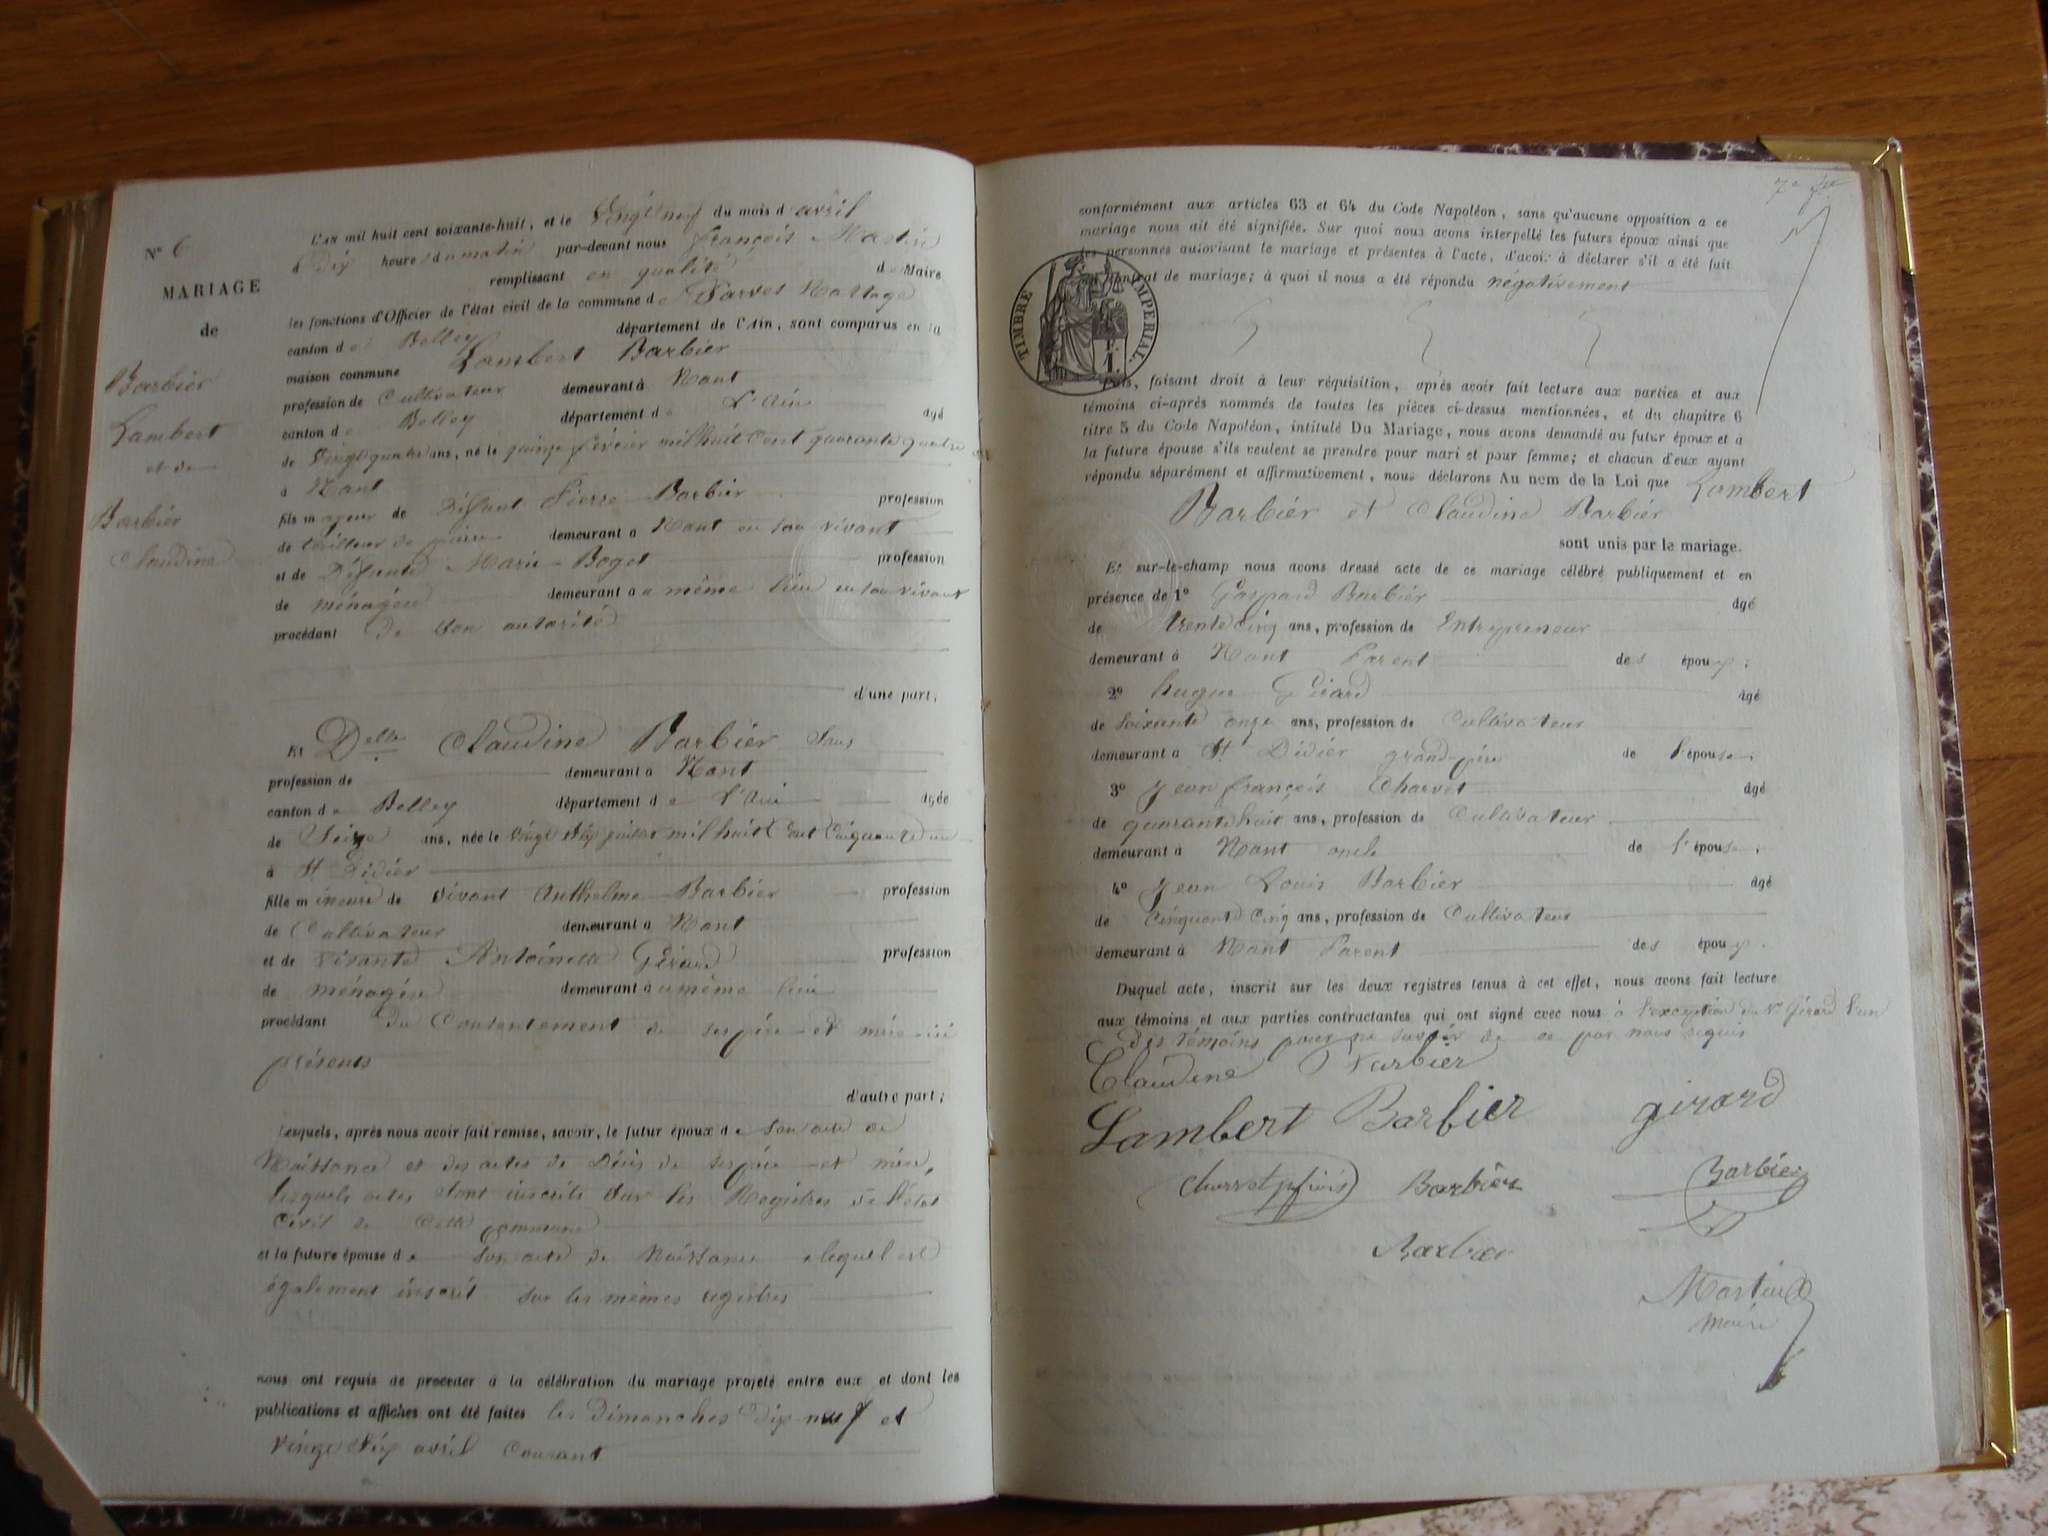 N° 6
MARIAGE
de
Barbier
Lambert
et de
Barbier
Claudine
L'an mil huit cent soixante-huit, et le Vingt neuf du mois d'avril
à dix heures du matin par-devant nous françois Martin
remplissant en qualité de Maire
les fonctions d'Officier de l'état civil de la commune de Parves
canton de Belley département de l'Ain, sont comparus en la
maison commune Lambert Barbier
profession de Cultivateur demeurant à Nant
canton de Belley département de L'Ain âgé
de Vingt quatre ans, né le quinze février mil huit Cent quarante quatre
à Nant
fils majeur de Défunt Pierre Barbier profession
de tailleur de pierre demeurant à Nant en son vivant
et de Défunte Marie Boget profession
de ménagère demeurant au même lieu en son vivant
procédant de son autorité
d'une part,
Et Delle Claudine Barbier Sans
profession de demeurant à Nant
canton de Belley département de L'Ain âgée
de Seize ans, née le Vingt Six juillet mil huit Cent Cinquante un
à St Didier
fille mineure de vivant Anthelme Barbier profession
de Cultivateur demeurant à Nant
et de vivante Antoinette Girard profession
de ménagère demeurant au même lieu
procédant du Consentement de ses père et mère ici
présents
d'autre part;
Lesquels, après nous avoir fait remise, savoir, le futur époux de Son acte de
Naissance et des actes de Décès de ses père et mère,
lesquels actes sont inscrits Sur les Registres de l'état
Civil de Cette Commune
et la future épouse de Son acte de Naissance lequel est
également inscrit sur les mêmes registres
nous ont requis de procéder à la célébration du mariage projeté entre eux et dont les
publications et affiches ont été faites les Dimanches Dix-neuf et
Vingt Six avril Courant
conformément aux articles 63 et 64 du Code Napoléon, sans qu'aucune opposition a ce
mariage nous ait été signifiée. Sur quoi nous avons interpellé les futurs époux ainsi que
les personnes autorisant le mariage et présentes à l'acte, d'avoir à déclarer s'il a été fait
contrat de mariage; à quoi il nous a été répondu négativement
TIMBRE IMPERIAL.
F. 1.
Puis, faisant droit à leur réquisition, après avoir fait lecture aux parties et aux
témoins ci-après nommés de toutes les pièces ci-dessus mentionnées, et du chapitre 6
titre 5 du Code Napoléon, intitulé Du Mariage, nous avons demandé au futur époux et à
la future épouse s'ils veulent se prendre pour mari et pour femme; et chacun d'eux ayant
répondu séparément et affirmativement, nous déclarons Au nom de la Loi que Lambert
Barbier et Claudine Barbier
sont unis par le mariage.
Et sur-le-champ nous avons dressé acte de ce mariage célébré publiquement et en
présence de 1° Gaspard Barbier âgé
de trente Cinq ans, profession de Entrepreneur
demeurant à Nant Parent des époux;
2° hugue Girard âgé
de Soixante onze ans, profession de Cultivateur
demeurant à St Didier grand-père de l'épouse;
3° Jean françois Charvet âgé
de quarante huit ans, profession de Cultivateur
demeurant à Nant oncle de l'épouse;
4° Jean Louis Barbier âgé
de Cinquante Cinq ans, profession de Cultivateur
demeurant à Nant Parent des époux.
Duquel acte, inscrit sur les deux registres tenus à cet effet, nous avons fait lecture
aux témoins et aux parties contractantes qui ont signé avec nous à l'exception du Sr Girard l'un
des témoins pour ne savoir de ce par nous requis
Claudine Barbier
Lambert Barbier girard
Charvet Barbier Barbier
Barbier
Martin
Maire